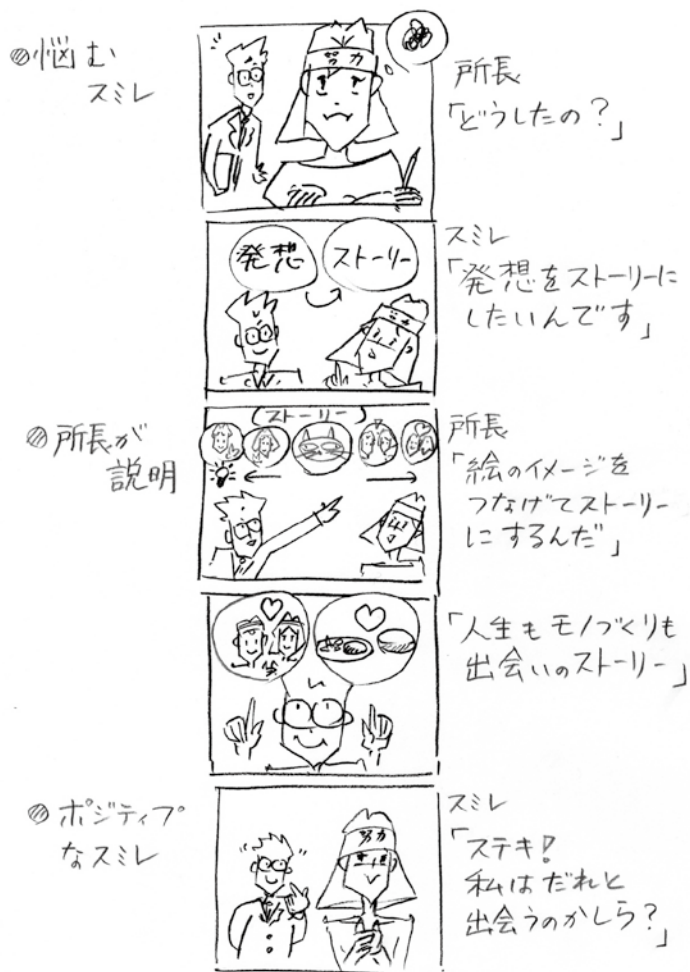 悩む
スミレ
努力
所長
「どうしたの？」
発想
ストーリー
スミレ
「発想をストーリーに
したいんです」
所長が
説明
ストーリー
所長
「絵のイメージを
つなげてストーリー
にするんだ」
「人生もモノづくりも
出会いのストーリー」
ポジティブ
なスミレ
努力
スミレ
「ステキ!
私はだれと
出会うのかしら？」